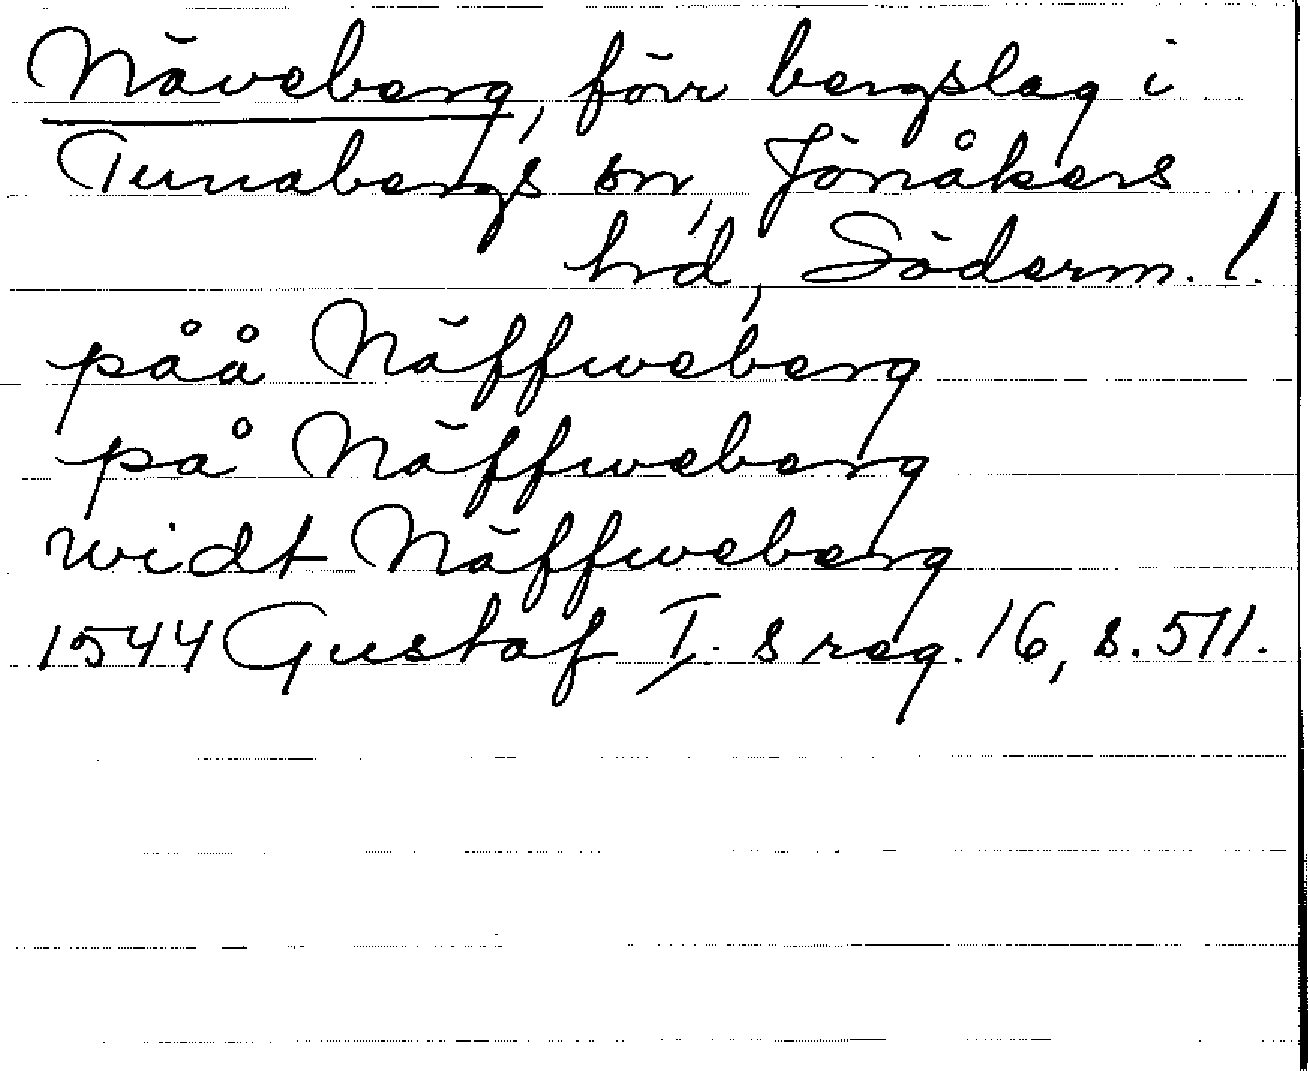 Näveberg, förr bergslag i
Tunabergs sn, Jönåkers
hd, Söderm. l.
påå Näffweberg
på Näffweberg
widt Näffweberg
1544 Gustaf I. s reg. 16, s. 511.